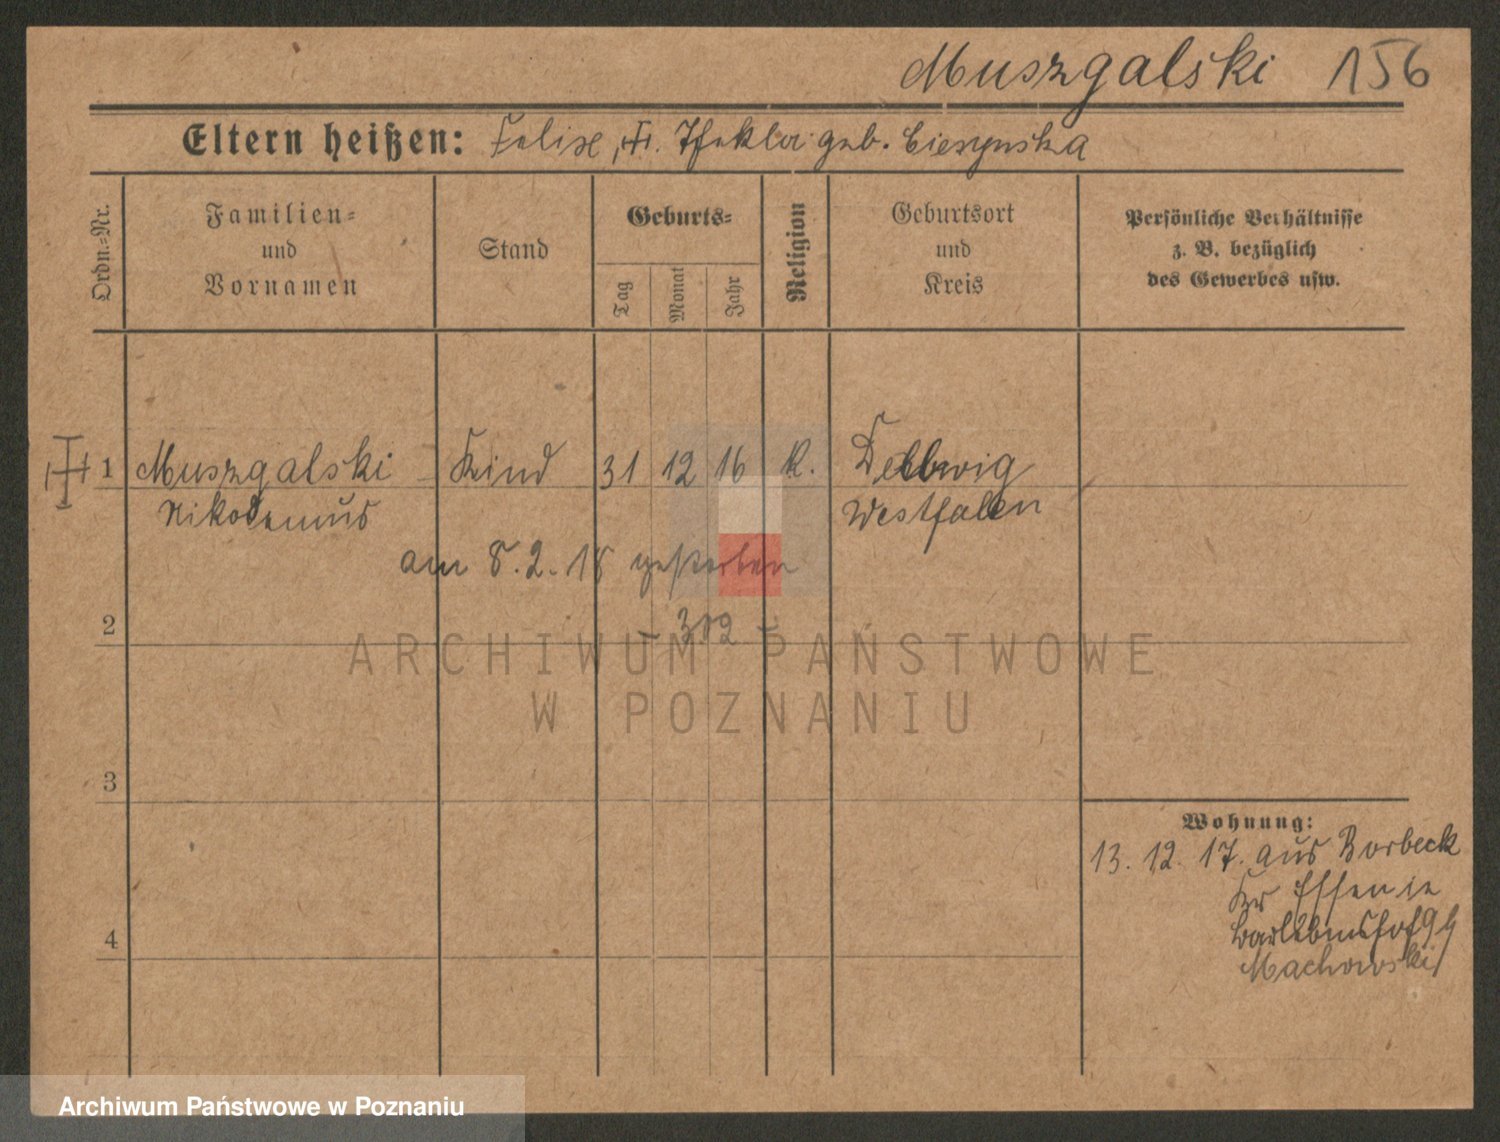 Muszgalski 156
Eltern heißen: Felise, u. Thekla geb. Ciesynska
Ordn.-Nr.
Familien- und Vornamen
Stand
Geburts-
Tag
Monat
Jahr
Religion
Geburtsort und Kreis
Persönliche Verhältnisse
z. B. bezüglich
des Gewerbes usw.
1 Muszgalski Kind 31 12 16 k. Dellwig
Nikodemus Westfalen
am 8.2.18 gestorben
2
ARCHIWUM PAŃSTWOWE
W POZNANIU
3
Wohnung:
13. 12. 17. aus Borbeck
Kr Essen in
4
Machowski
Archiwum Państwowe w Poznaniu